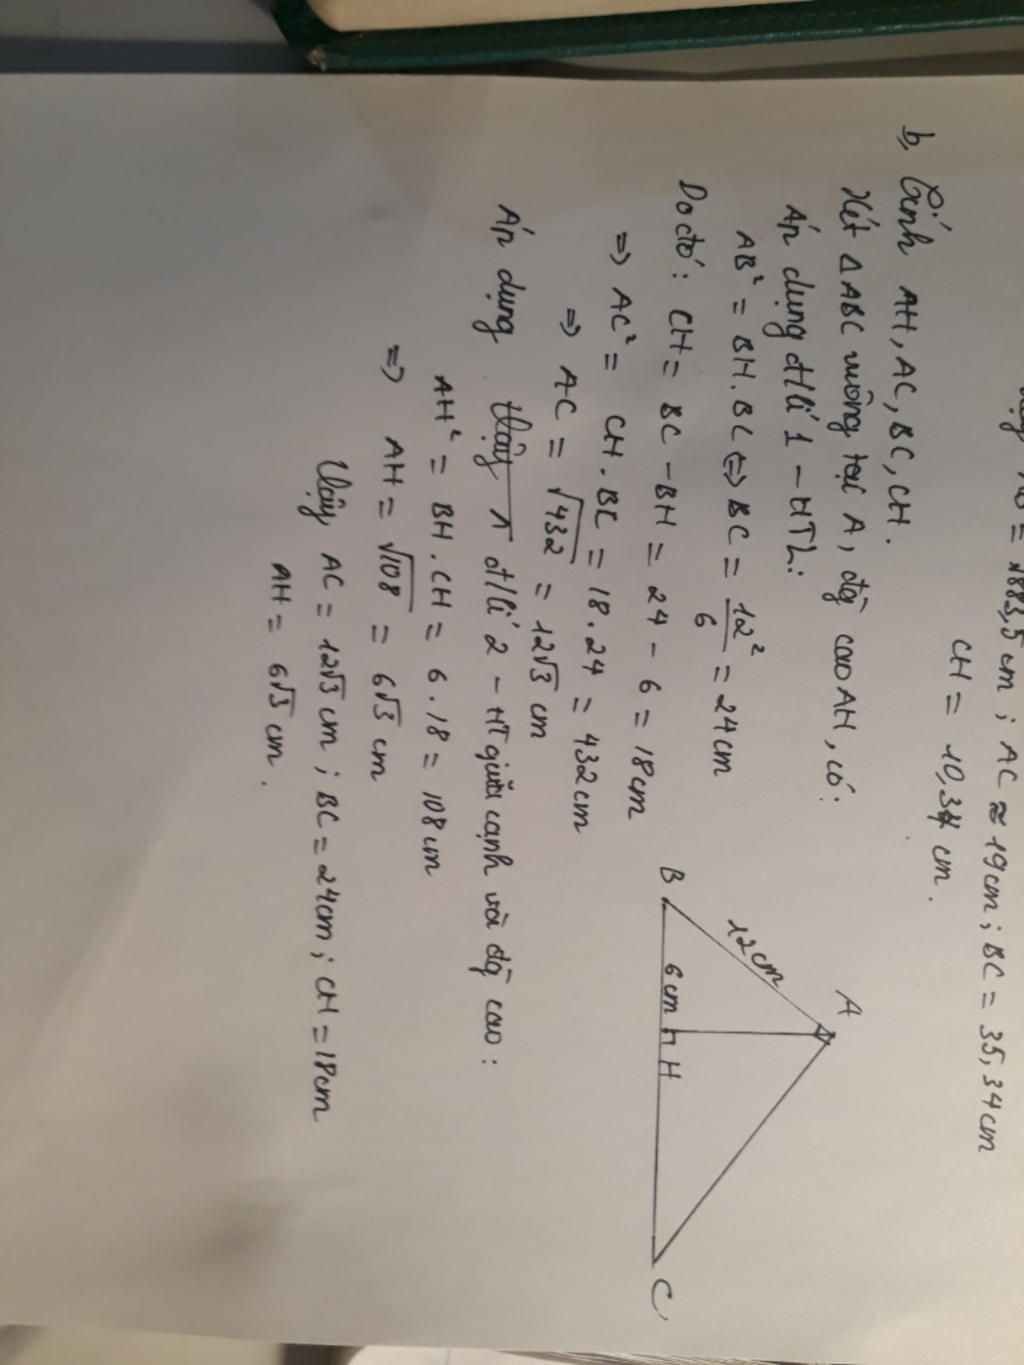 AB = √883,5 cm ; AC ≈ 19cm ; BC = 35,34cm
CH = 10,34 cm.
b, Tính AH, AC, BC, CH.
Xét Δ ABC vuông tại A, đg cao AH, có:
Áp dụng đ/lí 1 - HTL:
AB² = BH.BC ⇔ BC = 12²/6 = 24cm
Do đó: CH = BC - BH = 24 - 6 = 18cm
⇒ AC² = CH.BC = 18.24 = 432cm
⇒ AC = √432 = 12√3 cm
Áp dụng đ/lí 2 - HT giữa cạnh và đg cao:
AH² = BH.CH = 6.18 = 108cm
⇒ AH = √108 = 6√3 cm
Vậy AC = 12√3 cm ; BC = 24cm ; CH = 18cm
AH = 6√3 cm.
A
12cm
B
6cm
H
C